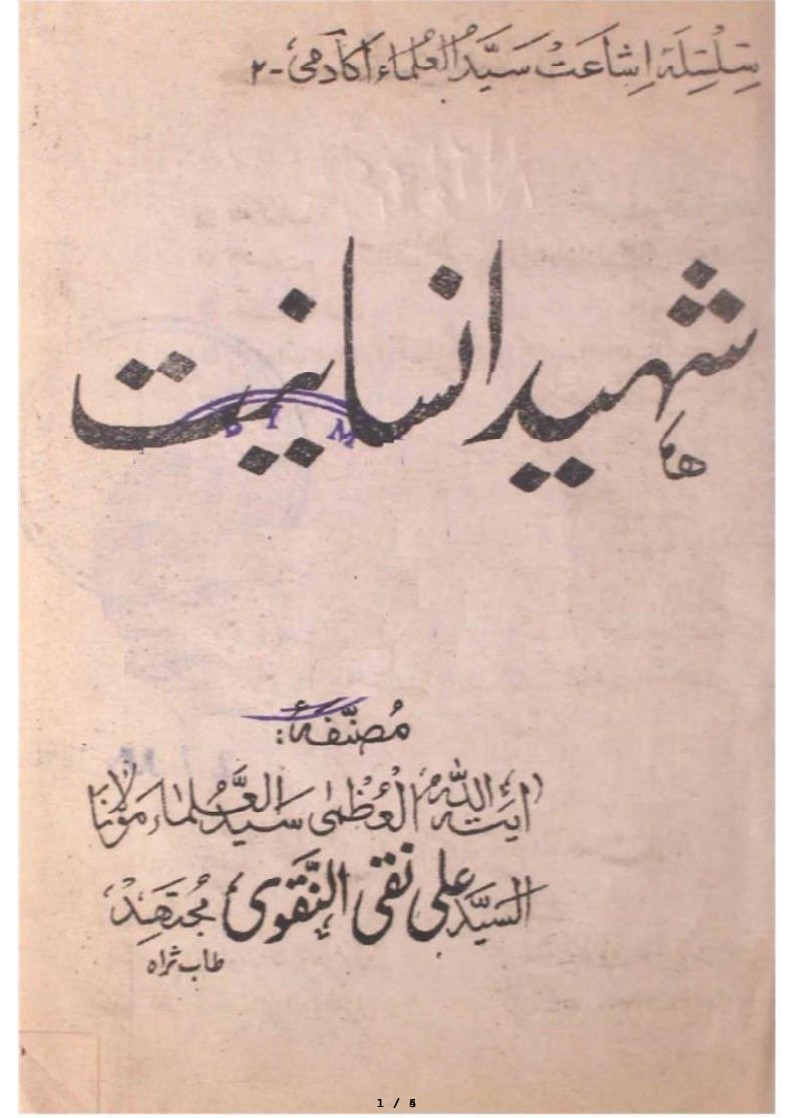 سِلْسِلَۂ اِشَاعَتْ سَیَّدُ العُلْمَاء اَکَادَمِیْ - ۲
شہید انسانیت
مُصَنَّفَۂ:
اٰیَتَہ اللّٰہُ الْعُظْمٰی سَیَّدُ العُلَمَاء مَوْلَانَا
السیَّد علی نقی النَّقَوی مُجْتَهِدْ
طاب ثراہ
1 /